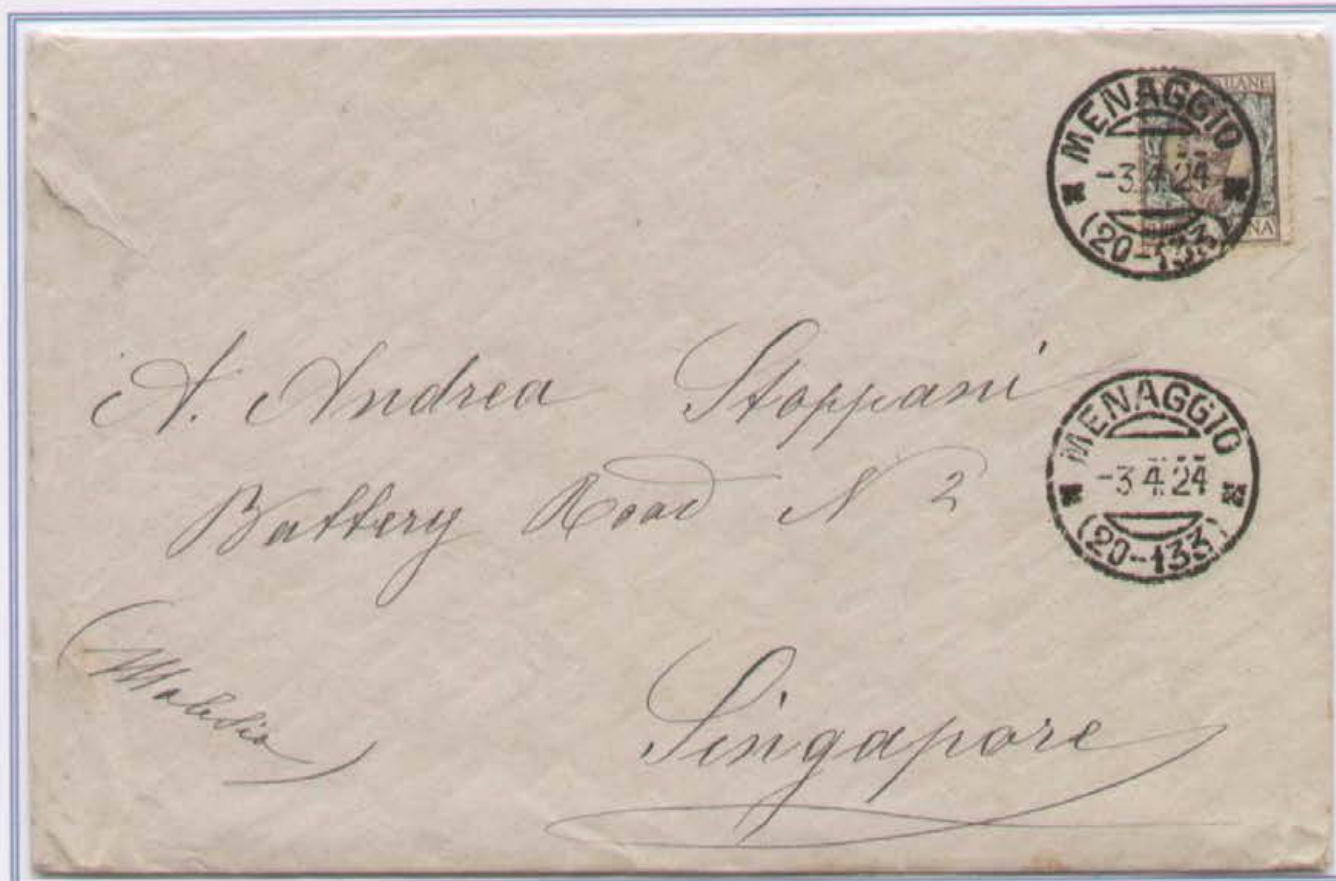 MENAGGIO
-3.4.24
(20-133)
A. Andrea Stoppani
Battery Road N 2
MENAGGIO
-3.4.24
(20-133)
(Malesia)
Singapore